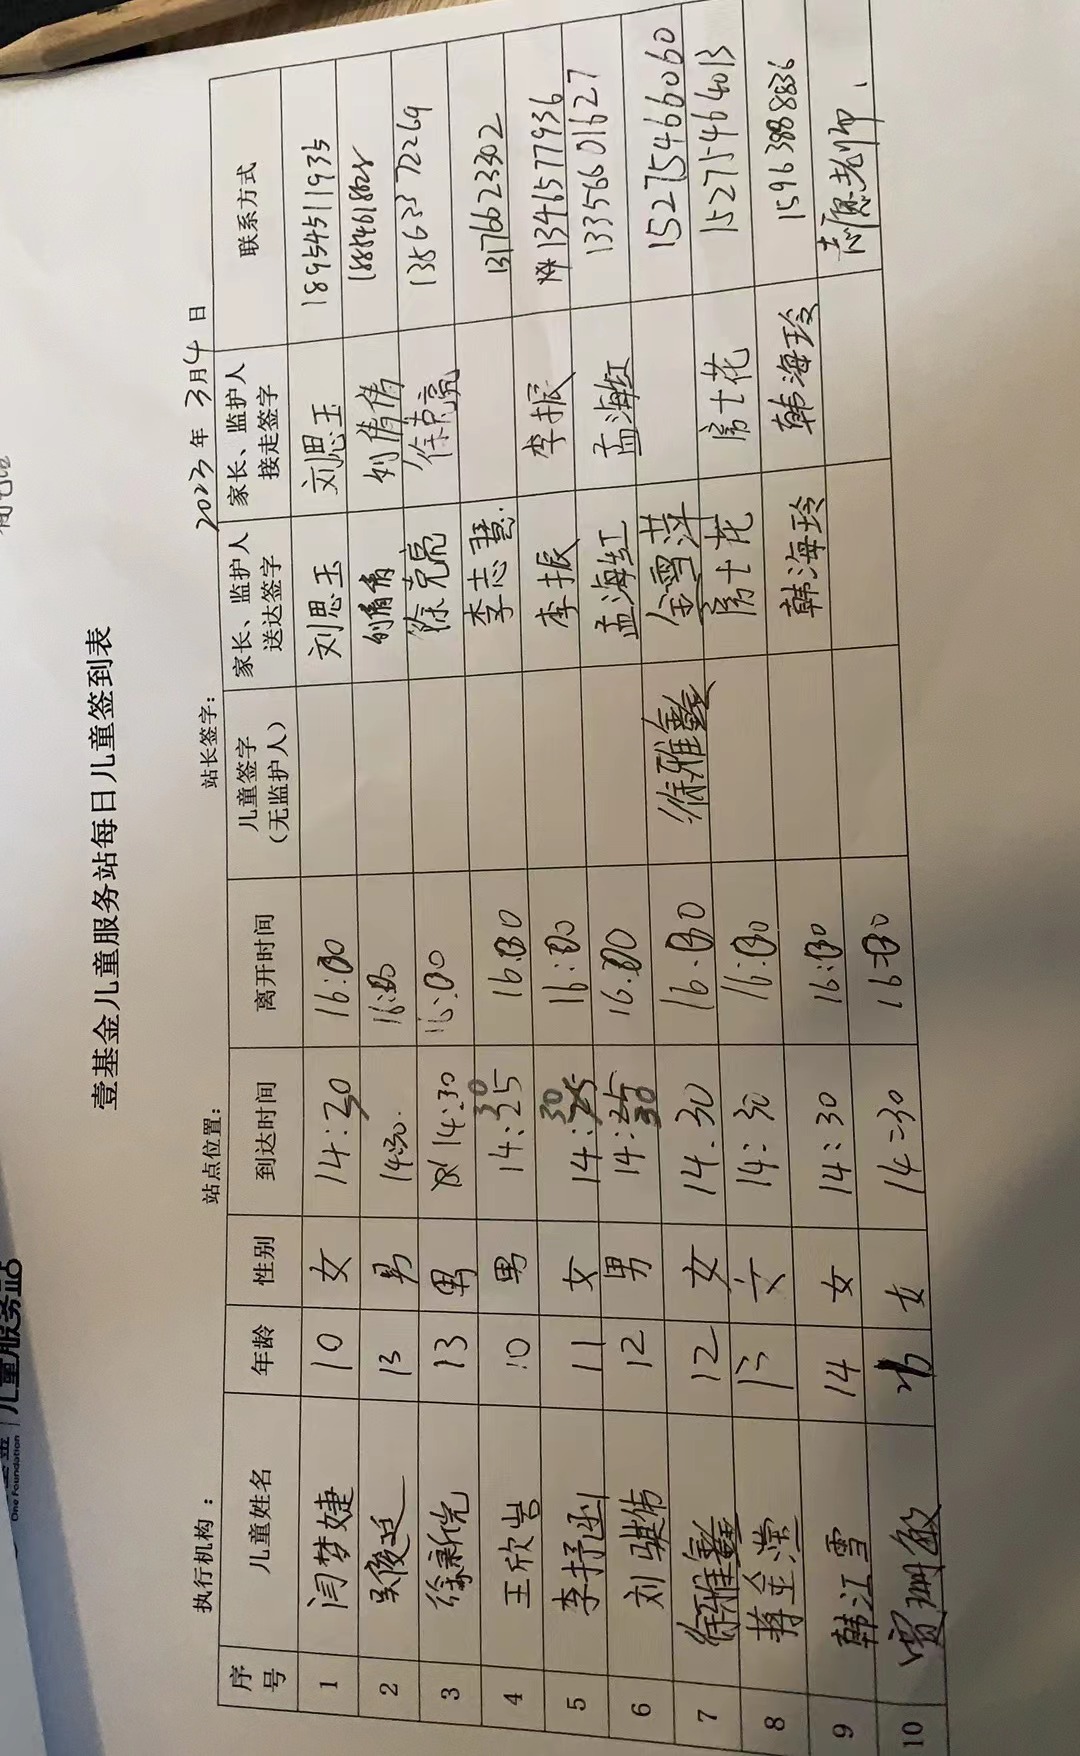 儿童服务站
One Foundation
壹基金儿童服务站每日儿童签到表
执行机构： 站点位置： 站长签字： 2023年3月4日
序号 儿童姓名 年龄 性别 到达时间 离开时间 儿童签字（无监护人） 家长、监护人送达签字 家长、监护人接走签字 联系方式
1 闫梦婕 10 女 14:30 16:30 刘思玉 刘思玉 18954511935
2 吴俊廷 13 男 14:30 16:30 刘倩倩 刘倩倩
3 13 男 14:30 16:30 徐克亮 徐克亮 13563372269
4 王欣岩 10 男 14:30 16:30 李志慧 13176623302
5 李抒函 11 女 14:30 16:30 李振 李振 1346577936
6 刘骐伟 12 男 14:30 16.30 孟海红 孟海红 13356601627
7 徐雅鑫 12 女 14.30 16.30 徐雅鑫 金雪萍 15275466060
8 蒋金滢 13 女 14:30 16:30 房士花 房士花 15275464013
9 韩江雪 14 女 14:30 16:30 韩海玲 韩海玲 15963888836
10 贾珊敏 女 14:30 16:30 志愿老师.